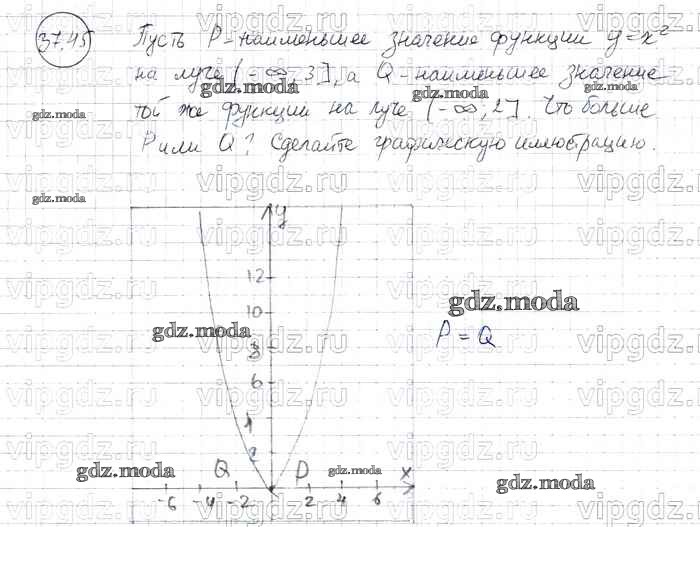 37.45 Пусть P-наименьшее значение функции y=x²
на луче (-∞; 3], а Q-наименьшее значение
той же функции на луче (-∞; 2]. Что больше
P или Q? Сделайте графическую иллюстрацию.
y
12
10
8
6
4
2
Q P x
-6 -4 -2 2 4 6
P = Q
vipgdz.ru
gdz.moda